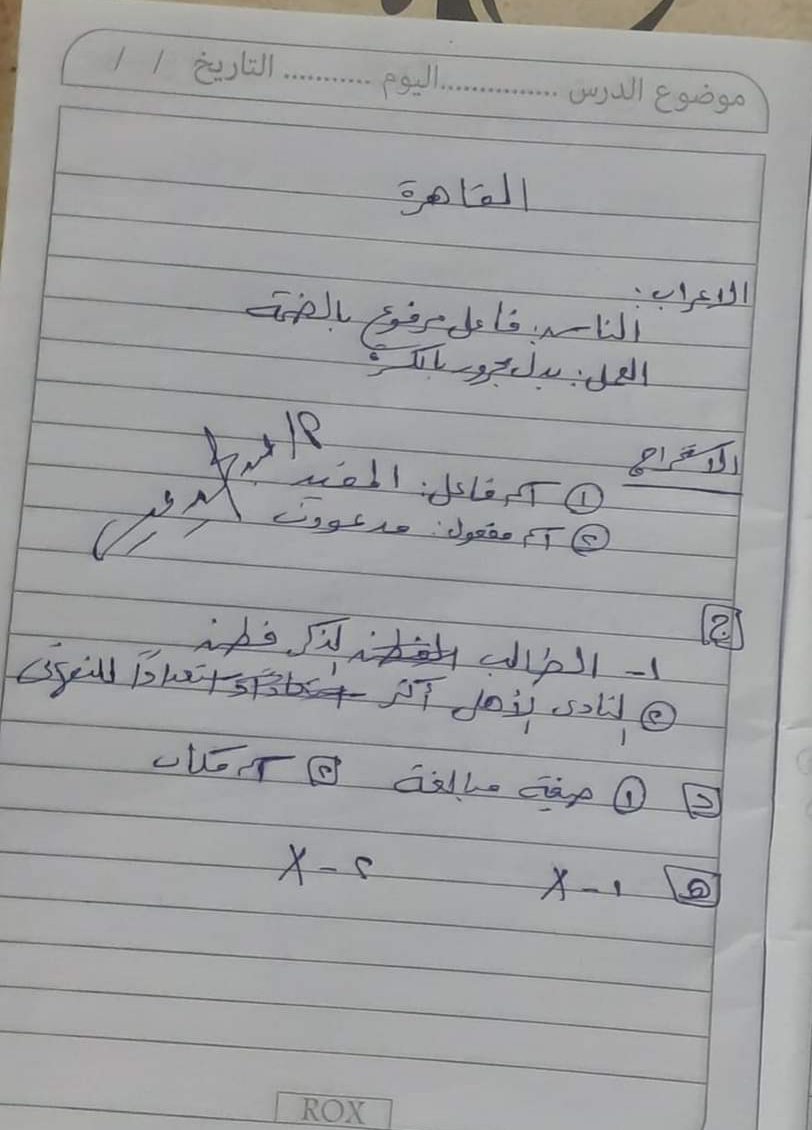 موضوع الدرس ............... اليوم ........... التاريخ / /
القاهرة
الاعراب:
الناس: فاعل مرفوع بالضمة
العمل: بدل مجرور بالكسرة
الاستخراج
① اسم فاعل: المفيد
② اسم مفعول: مدعوون
ج
١- الطالب الذكي فطن
② النادى الأهل أكثر استعداداً للتعرف
د ① صيغة مبالغة ② اسم مكان
ه ١- X ٢- X
ROX